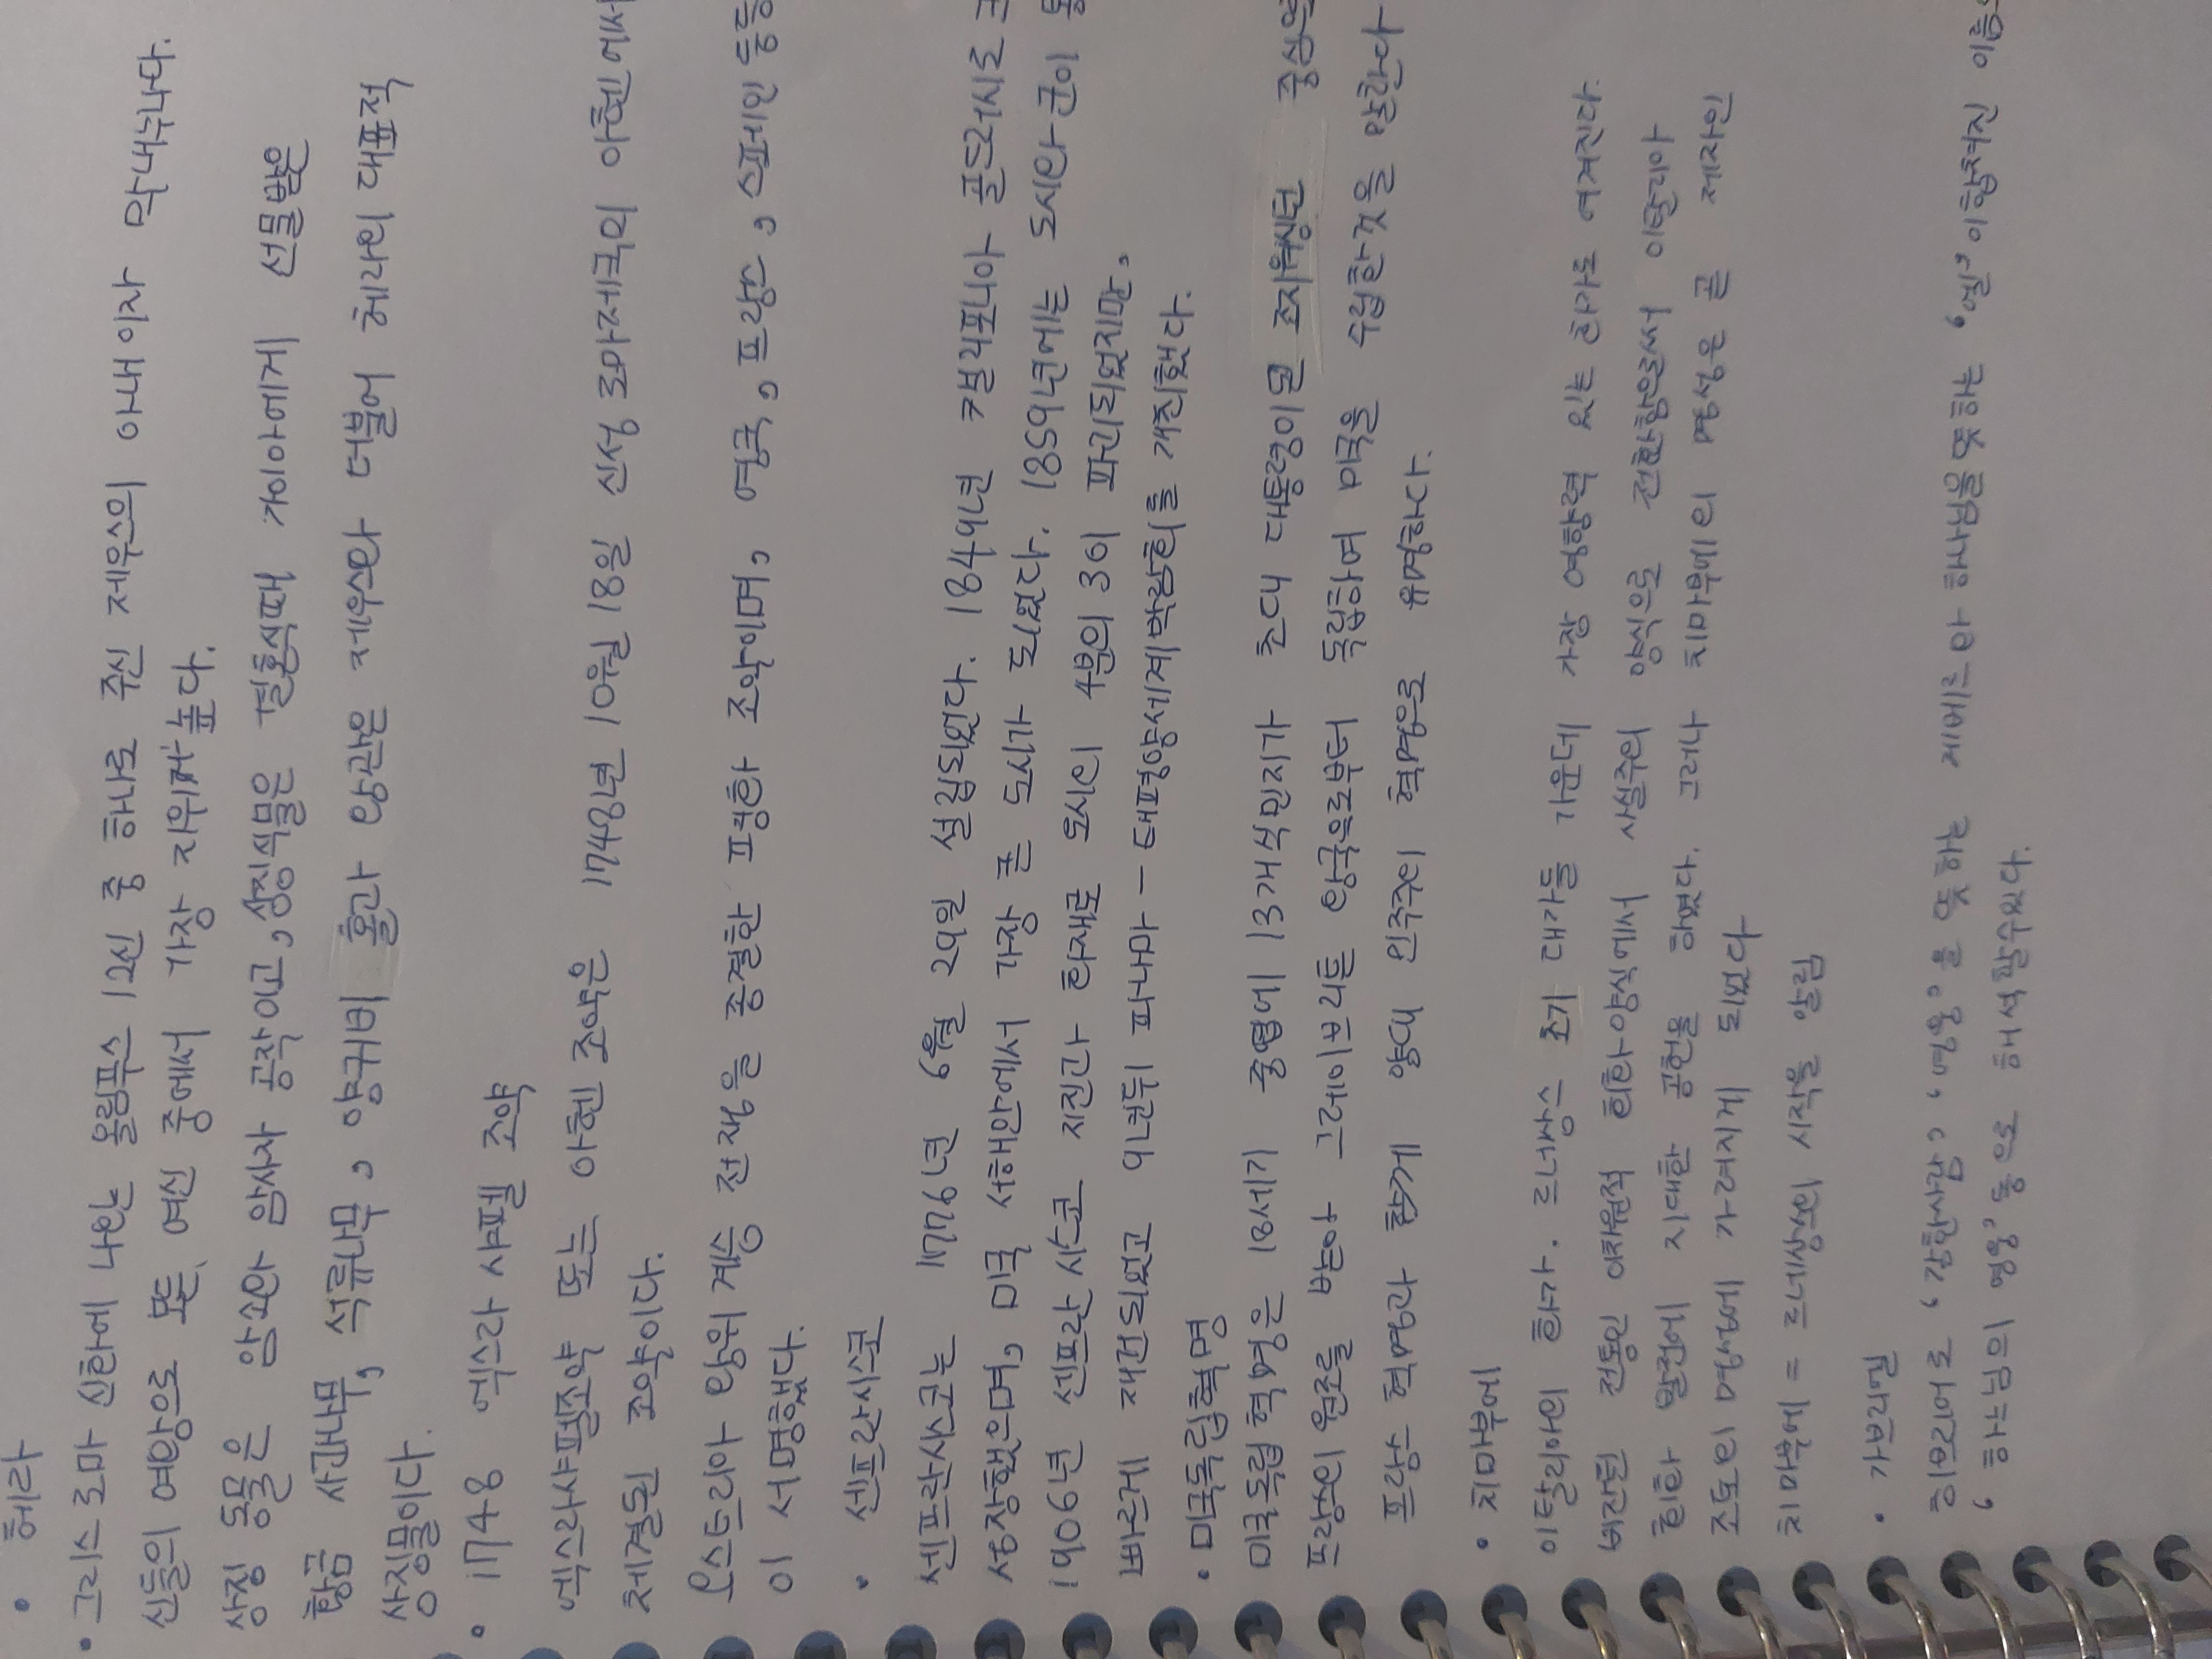 • 헤라
• 그리스 로마 신화에 나오는 올림푸스 12신 중 하나로 주신 제우스의 아내이자 막내누나다.
신들의 여왕으로 모든 여신 중에서 가장 지위가 높다.
상징 동물은 암소와 암사자 공작이고, 상징식물은 결혼식때 가이아에게 선물받은
황금 사과나무, 석류나무, 양귀비 홀과 왕관은 제우스와 더불어 헤라의 대표적
상징물이다.
• 1748 엑스라 샤펠 조약
엑스라샤펠조약 또는 아헨 조약은 1748년 10월 18일 신성 로마제국의 아헨에서
체결된 조약이다.
오스트리아 왕위 계승 전쟁을 종결한 평화 조약이며, 영국, 프랑스, 스페인 등등
이 서명했다.
• 센프란시스코
센프란시스코는 1776년 6월 29일 설립되었다. 1849년 캘리포니아 골드러시로
성장했으며, 미국 서해안에서 가장 큰 도시가 되었다. 1859년에는 도시와 군이
1906년 센프란시스코 지진과 화재로 도시의 4분의 3이 파괴되었지만,
빠르게 재건되었고 9년뒤 파나마-태평양세계박람회를 개최했다.
• 미국독립혁명
미국독립혁명은 18세기 중엽에 13개식민지가 초대 대통령이 된 조지워싱턴 중심으
프랑스의 원조를 받아 그레이트브리튼 왕국으로부터 독립하여 미국을 수립한것을 말한다
프랑스 혁명과 함께 양대 민주주의 혁명으로 유명하다.
• 치마부에
이탈리아의 화가. 르네상스 초기 대가들 가운데 가장 영향력 있는 화가로 여겨진다.
비잔틴 전통인 이차원적 회화-양식에서 사실주의 양식으로 전환함으로써 이탈리아
회화 발전에 지대한 공헌을 하였다. 그러나 치마부에의 명성은 곧 제자인
조토의 명성에 가려지게 되었다
치마부에 = 르네상스의 시작을 알림
• 가브리엘
히브리어로, 강한사람, , 영웅, 을 뜻하는 게베르와 하나님을뜻하는 '엘', 이합쳐진 이름
, 하느님의 영웅, 등으로 해석할수있다.